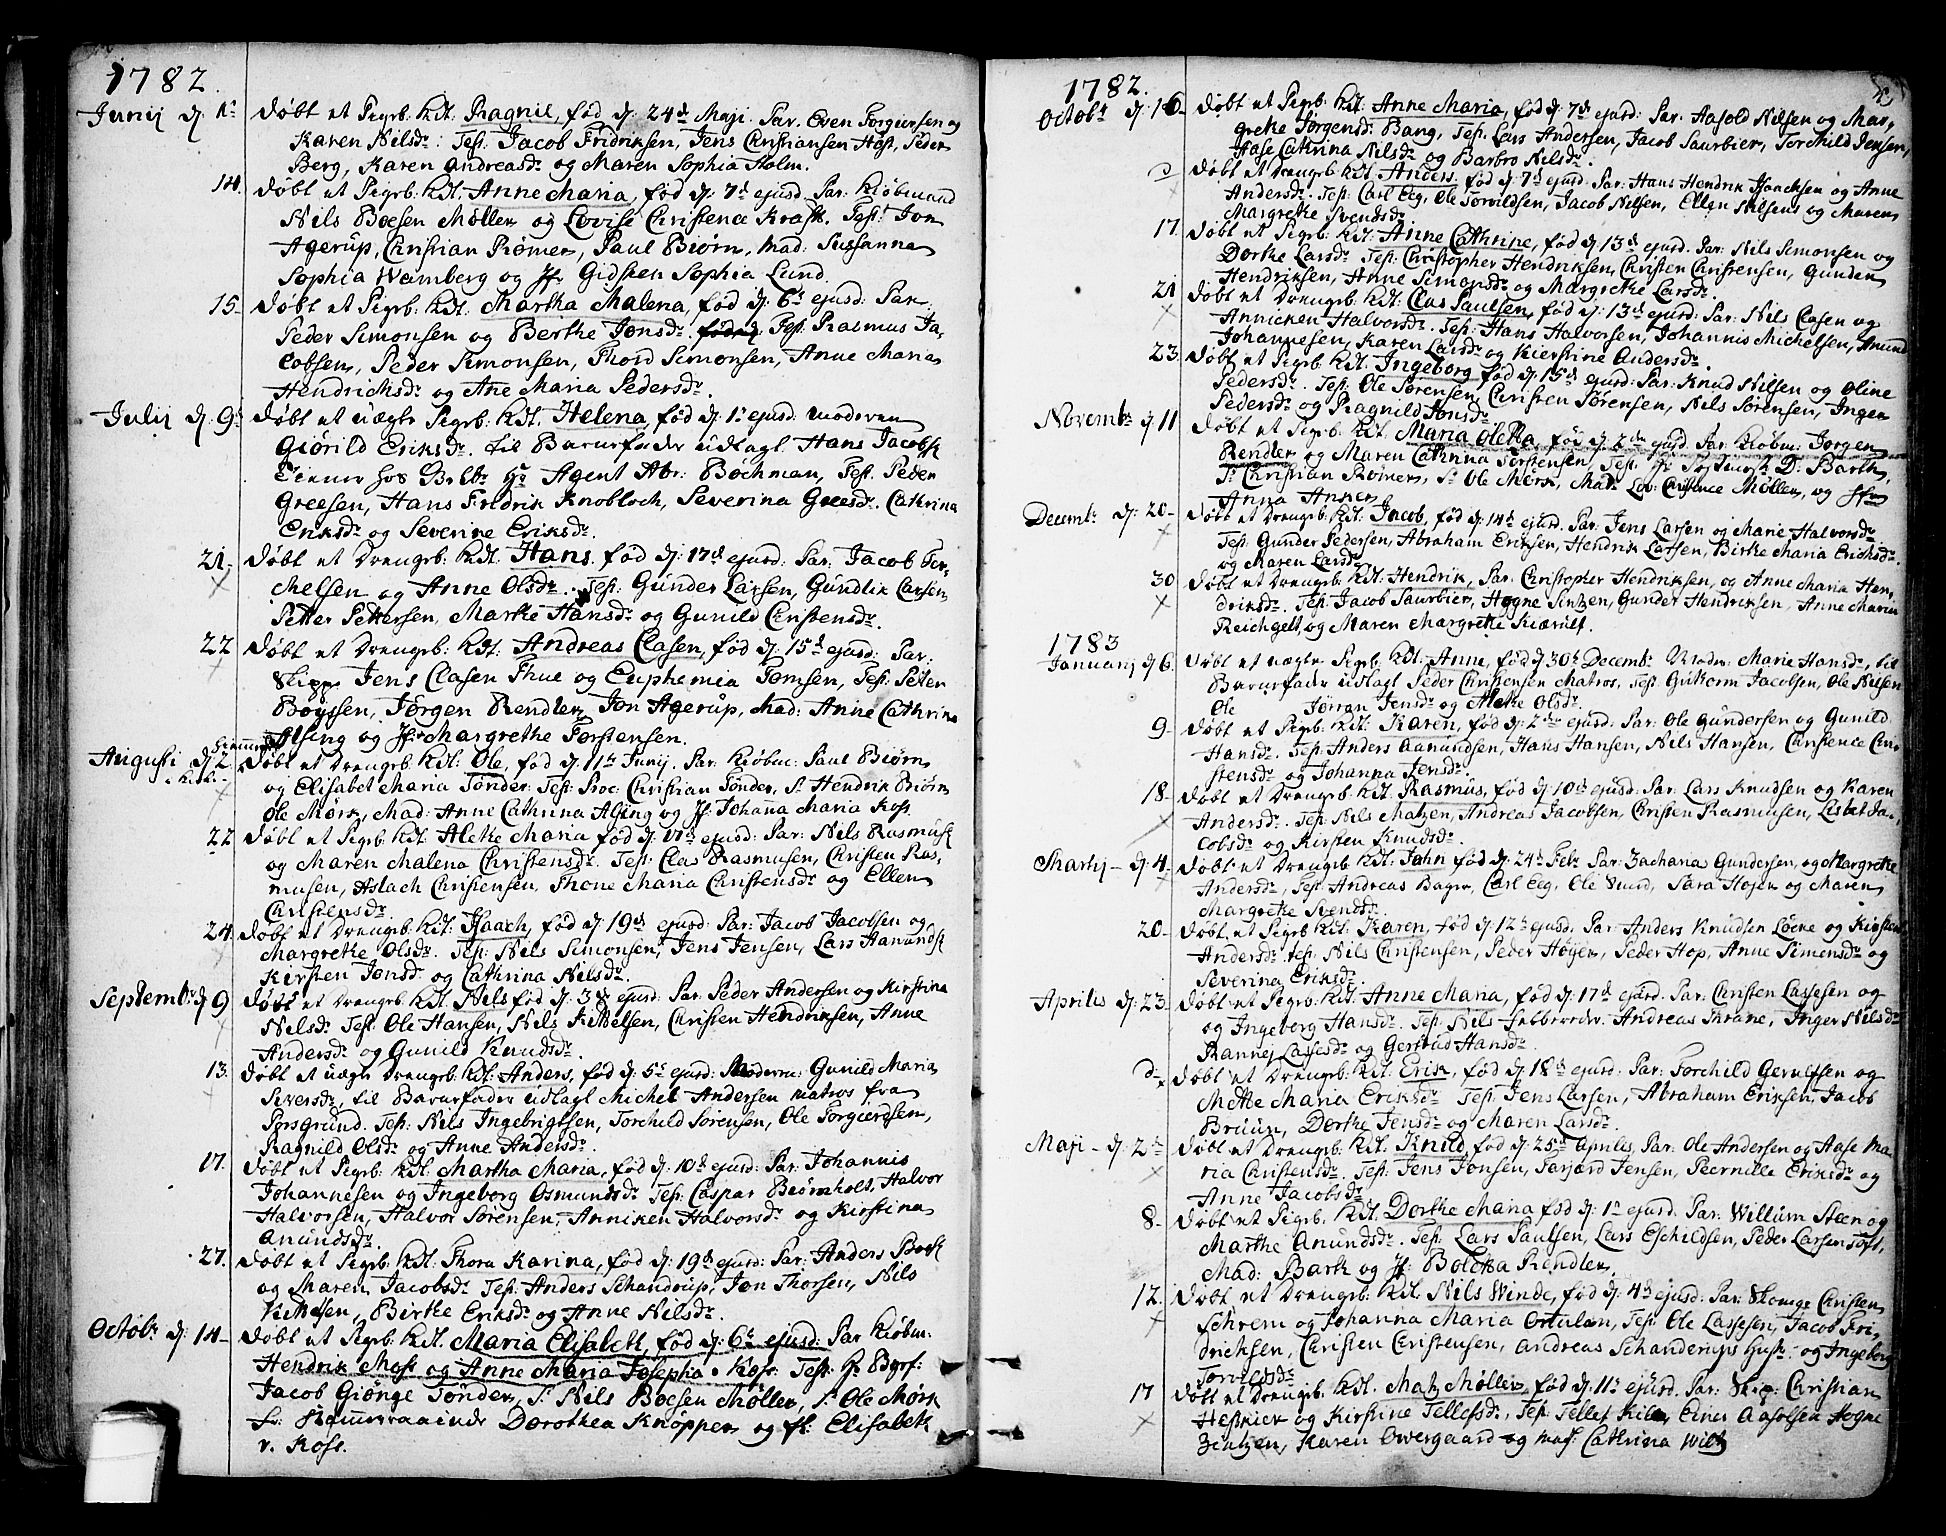 1782.
Junij d: 1ste døbt et Pigeb: kdt: Ragnil, fød d: 24de Maji. Par. Even Torgiersen og
Karen Nilsdr: Test: Jacob Fridriksen, Jens Christiansen Høst, Peder
Berg, Karen Andreasdr og Maren Sophia Holm.
14. døbt et Pigeb: kdt: Anne Maria, fød d: 7de ejusd: Par: Kiøbmand
Nils Boesen Møller og Lovise Christence Kraft. Test: Jon
Agerup, Christian Rømer, Paul Biørn, Mad: Sussanna
Sophia Wamberg og Jfr Gidsten Sophia Lund.
15. døbt et Pigeb: kdt: Martha Malena, fød d: 6te ejusd: Par.
Peder Simonsen og Berthe Jonsdr. Test: Rasmus Ja-
cobsen, Peder Simonsen, Thord Simonsen, Anne Maria
Hendrichsdr og Ane Maria Pedersdr.
Julij d: 9. døbt et uægte Pigeb: kdt: Helena, fød d: 1. ejusd: Moderen
Giørild Eriksdr. til Barnefader udlagt Hans Jacobs:
Tienner hos Hr Agent Abr: Bochman, Test: Peder
Greesen, Hans Fredrik Knobloch, Severina Greesdr. Cathrina
Eriksdr og Severine Eriksdr.
21. døbt et Drengeb: kdt: Hans, fød d: 17de ejusd: Par: Jacob Ter-
chelsen og Anne Olsdr. Test: Gunder Larsen, Gundlik Larsen,
Petter Pettersen, Marthe Hansdr og Gunild Christensdr.
22 døbt et Drengeb: kdt: Andreas Clasen, fød d: 15de ejusd: Par:
Skipp Jens Clasen Thue og Euphemia Tomsen, Test: Peter
Boyssen, Jørgen Rendler, Jon Agerup, Mad: Anne Cathrina
Alsing og Jfr Margrethe Torstensen.
Augusti d: 2. døbt et Drengeb: kdt: Ole, fød d: 11te Junij. Par: Kiøbm: Paul Biørn
og Elisabet Maria Tønder. Test: Proc: Christian Tønder, Sr Hendrik Biørn
Ole Mørk, Mad: Anne Cathrina Alsing og Jf. Johanna Maria Koss.
22 døbt et Pigeb: kdt: Alethe Maria fød d: ejusd: Par: Nils Rasmus:
og Maren Malena Christensdr. Test: Clas Rasmusen, Christen Ras-
musen, Aslach Christensen, Thone Maria Christensdr og Ellen
Christensdr.
24. døbt et Drengeb: kdt: Isaach, fød d: 19de ejusd: Par: Jacob Jacobsen og
Margrethe Olsdr. Test: Nils Simonsen, Jens Jensen, Lars Aanunds:
Kirsten Jonsd: og Cathrina Nilsdr.
Septembr d: 9 døbt et Drengeb: kdt: Nils fød d: 3de ejusd: Par: Peder Andersen og Kirstina
Nilsdr. Test: Ole Hansen, Nils Kittelsen, Christen Hendriksen, Anne
Andersdr og Gunild Knudsdr.
13. døbt et uægte Drengeb: kdt: Anders, fød d: 5te ejusd: Moderen: Gunild Maria
Siversdr, til Barnefader udlagt Michel Andersen Matros fra
Porsgrund. Test: Nils Ingebrigtsen, Torchild Sørensen, Ole Torgiersen,
Ragnild Olsdr og Anne Andersdr.
17. døbt et Pigeb: kdt: Martha Maria, fød d: 10de ejusd: Par: Johannis
Johannesen og Ingeborg Osmundsdr Test: Caspar Biørnholt, Halvor
Halvorsen, Halvor Sørensen, Anniken Halvorsdr og Kirstina
Anundsdr.
27. døbt et Pigeb: kdt: Thora Karina, fød d: 19de ejusd: Par: Anders Bock
og Maren Jacobsdr Test: Anders Schandrup, Jon Thorsen, Nils
Kittelsen, Birthe Eriksdr og Anne Nilsdr.
Octobr d: 14. døbt et Pigeb: kdt: Maria Elisabeth, fød d: 6te ejusd: Par Kiøbm:
Hendrik Moss og Anne Maria Josepha v. Koss. Test: Hr Byef:
Jacob Giønge Tønder, Sr Nils Boesen Møller, Sr Ole Mørk
Dorothea Knopper og fr. Elisabeth
v. Koss.
1782.
Octobr d: 16. døbt et Pigeb: kdt: Anne Maria, fød d: 7de ejusd: Par: Aasold Nilsen og Mar-
grethe Jørgensdr Bang, Test: Lars Andersen, Jacob Saurbier, Torchild Jensen,
Aase Cathrina Nilsdr og Barbro Nilsdr.
d døbt et Drengeb: kdt: Anders, fød d: 7de ejusd: Par: Hans Hendrik Isaachsen og Anne
Andersdr. Test: Carl Eeg, Ole Torvildsen, Jacob Nilsen, Ellen Nilsens og Maren
Margrethe Svendsdr.
17. døbt et Pigeb: kdt: Anne Cathrine, fød d: 13de ejusd: Par: Nils Simonsen og
Dorthe Larsdr. Test: Christopher Hendriksen, Christen Christensen, Gunder
Hendriksen, Anne Simonsdr og Margrethe Larsdr.
21 døbt et Drengeb: kdt: Clas Paulsen, fød d: 13de ejusd: Par: Nils Clasen og
Annichen Halvorsdr. Test: Hans Halvorsen, Johannis Michelsen, Anund
Johannesen, Karen Larsdr og Kierstine Andersdr.
23. døbt et Pigeb: kdt: Ingeborg fød d: 15de ejusd: Par: Knud Nilsen og Oline
Pedersdr. Test: Ole Sørensen, Christen Sørensen, Nils Sørensen, Inger
Pedersdr og Ragnild Jonsdr.
Novembr d: 11 døbt et Pigeb: kdt: Maria Oletha, fød d: 2den ejusd: Par: Kiøbm: Jorgen
Rendler og Maren Cathrina Torstensen, Test: D: Barth,
Sr Christian Rømer, Sr Ole Mørk, Mad: Lov: Cristence Møller, og Jfr
Anna Anker
Decembr d: 20. døbt et Drengeb: kdt: Jacob, fød d: 14de ejusd: Par: Jens Larsen og Marie Halvorsdr.
Test: Gunder Pedersen, Abraham Eriksen, Hendrik Larssen, Birthe Maria Erichsdr.
og Maren Larsdr.
30 døbt et Drengeb: kdt: Hendrik, Par: Christopher Hendriksen, og Anne Maria Hen-
driksdr. Test: Jacob Saurbier, Hogne Sintzen, Gunder Hendriksen, Anne Maria
Reichgelt, og Maren Margrethe Kiærulf.
1783
Januarij d: 6. døbt et uægte Pigeb: kdt: Anne, fød d: 30te Decembr Modr: Marie Hansdr, til
Barnefader udlagt Peder Christensen Matros, Test: Guthorm Jacobsen, Ole Nilsen
Ole Jørran Jensdr og Alethe Olsdr.
9. døbt et Pigeb: kdt: Karen, fød d: 2den ejusd: Par: Ole Gundersen og Gunild
Hansdr. Test: Anders Aamundsen, Hans Hansen, Nils Hansen, Christence Chri-
stensdr og Johanna Jensdr.
18. døbt et Drengeb: kdt: Rasmus, fød d: 10de ejusd: Par: Lars Knudsen og Karen
Andersdr. Test: Nils Matzen, Andreas Jacobsen, Christen Rasmusen, Lisbet Ja-
cobsdr og Kirsten Knudsdr.
Martij d: 4. døbt et Drengeb: kdt: John fød d: 24de Febr Par: Zacharias Gundersen, og Margrethe
Andersdr, Test: Andreas Bager, Carl Eeg, Ole Suurd, Sara Hojen og Maren
Margrethe Svendsdr.
20. døbt et Pigeb: kdt: Karen, fød d: 12te ejusd. Par Anders Knudsen Løcke og Kirsten
Andersdr. Test: Nils Christensen, Peder Høyer, Peder Hop, Anne Simensdr og
Severina Eriksdr.
Aprilis d: 23. døbt et Pigeb: kdt: Anne Maria, fød d: 17de ejusd. Par: Christen Lassesen og
og Ingeborg Hansdr. Test: Nils Andreas Thrane, Inger Nilsdr
Rannej Lassesdr og Gertrud Hansdr.
d døbt et Drengeb: kdt: Erik, fød d: 18de ejusd: Par: Torchild Gerulfsen og
Mette Maria Eriksdr Test: Jens Larsen, Abraham Eriksen, Jacob
Bruun, Dorthe Jensdr og Maren Larsdr.
Maji d: 2de døbt et Drengeb: kdt: Knud, fød d: 25de Aprilis, Par: Ole Andersen og Aase Ma-
ria Christensdr. Test: Jens Jonsen, Tarjærd Jensen, Peernille Eriksdr og
Anne Jacobsdr.
8. døbt et Pigeb: kdt: Dorthe Maria fød d: 1te ejusd: Par: Willum Steen og
Marthe Anundsdr. Test: Lars Paulsen, Lars Eschildsen, Peder Larsen Toft,
Mad: Barth og Jf: Boletha Rendler.
12. døbt et Drengeb: kdt: Nils Winde, fød d: 4de ejusd: Par: Skomgr Christen
Schrem og Johanna Maria Ortulan, Test: Ole Lassesen, Jacob Fri-
drichsen, Christen Christensen, Andreas Schandrups Hust: og Ingeborg
Torvilsdr
17 døbt et Drengeb: kdt: Matz Møller, fød d: 11te ejusd: Par: Skip: Christian
Heskier og Kirstine Tellefsdr, Test: Tellef Kiln, Einer Aasolsen, Hogne
Zintzen, Karen Owergaard og Mad: Cathrina Wilt